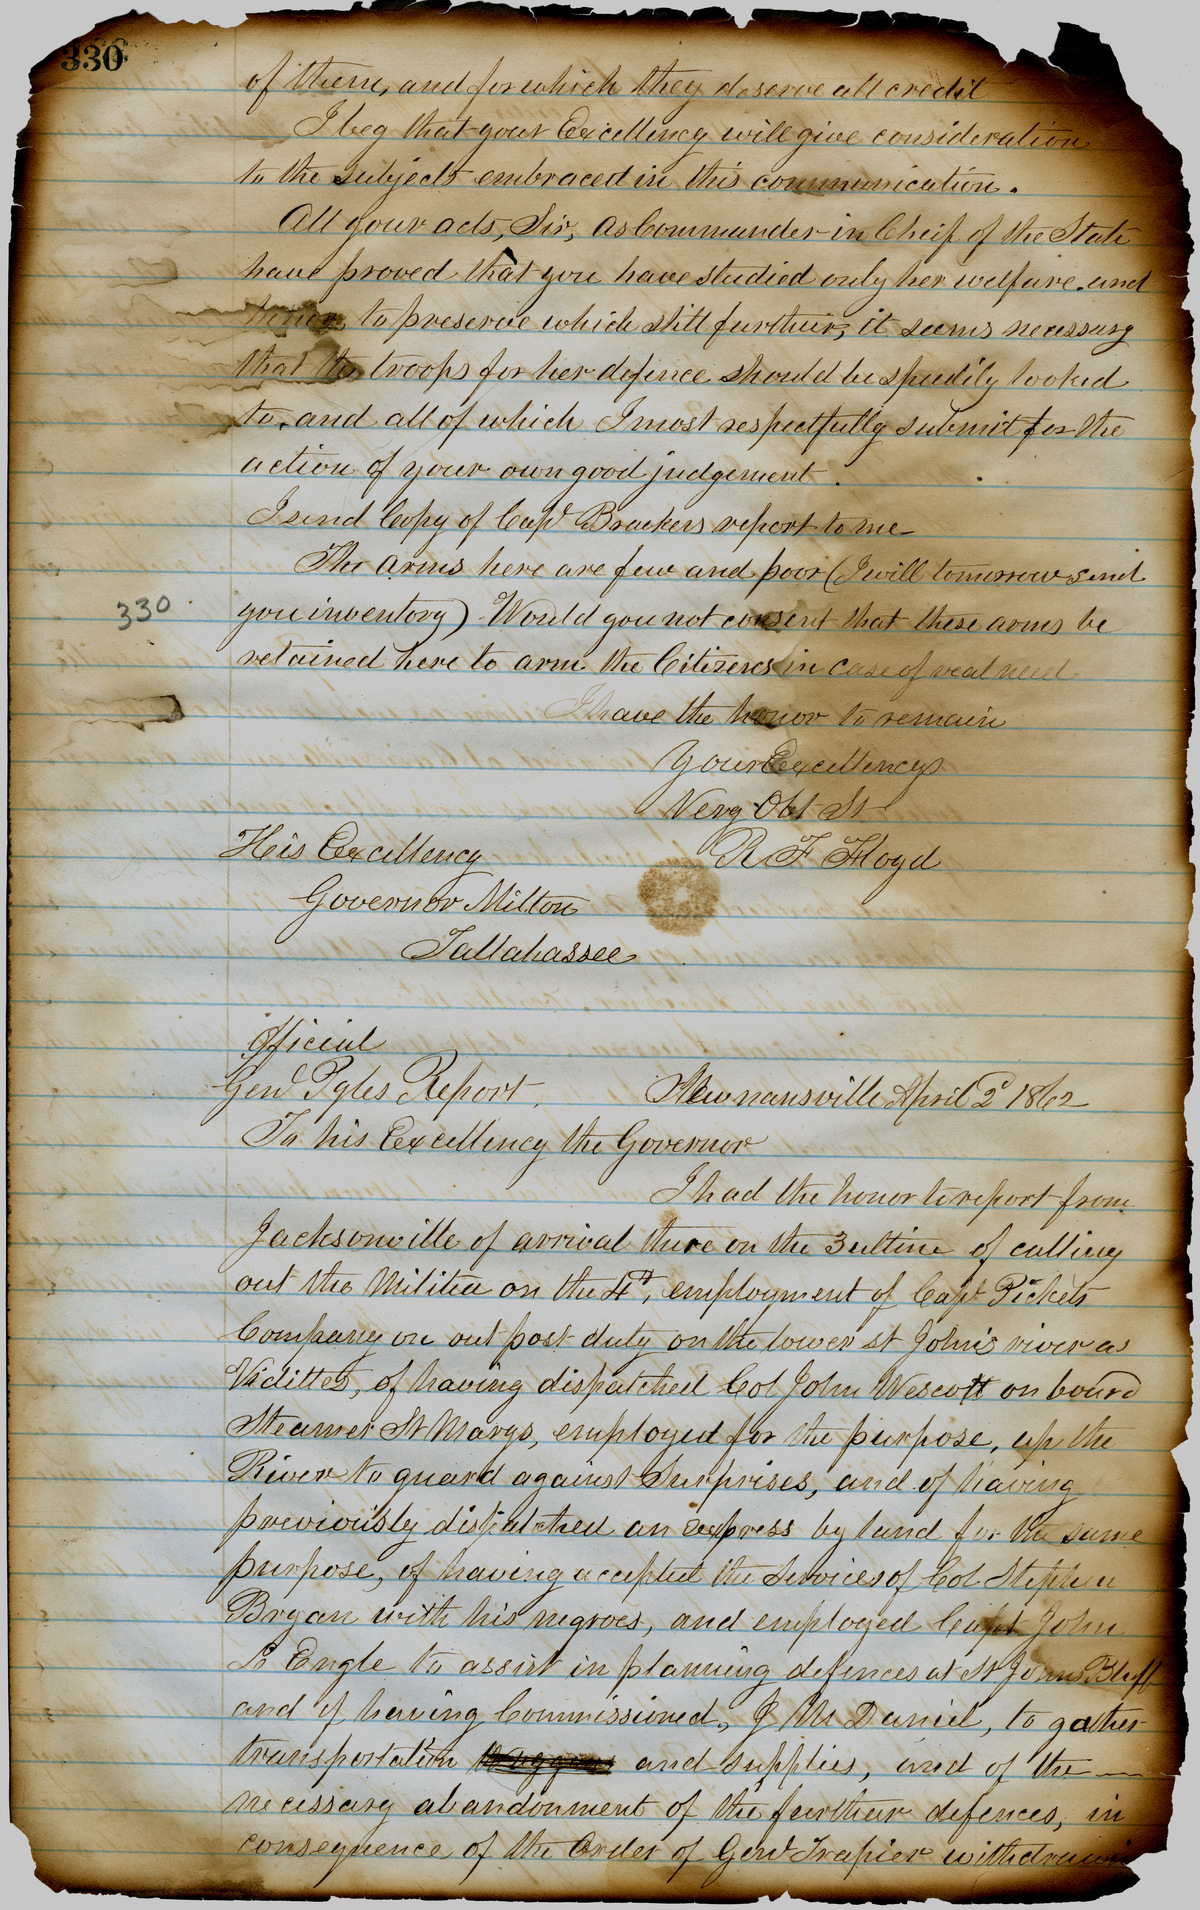 330
of them, and for which they deserve all credit
I beg that your Excellency will give consideration
to the subjects embraced in this communication.
All your acts, Sir, as Commander in Cheif of the State
have proved that you have studied only her welfare and
honor, to preserve which still further, it seems necessary
that the troops for her defence should be speedily looked
to, and all of which I most respectfully submit for the
action of your own good judgement.
I send Copy of Capt Brackers report to me
The arms here are few and poor (I will tomorrow send
330
you inventory) Would you not consent that these arms be
retained here to arm the Citizens in case of real need
I have the honor to remain
Your Excellencys
Very Obt St
R F Floyd
His Excellency
Governor Milton
Tallahassee
Official
Genl Pyles Report,
Newnansville April 2d 1862
To his Excellency the Governor
I had the honor to report from
Jacksonville of arrival there on the 3 ultine of calling
out the Militia on the 4th, employment of Capt Pickets
Company on out post duty on the lower St John's river as
Vidittes, of having dispatched Col John Wescott on board
Steamer St Marys, employed for the purpose, up the
River to guard against Surprises, and of having
previously dispatched an express by land for the same
purpose, of having accepted the Services of Col Stephen
Bryan with his negroes, and employed Capt John
L Engle to assist in planning defences at St Johns Bluff
and of having Commissioned, J M Daniel, to gather
transportation and supplies, and of the
necessary abandonment of the further defences, in
consequence of the Order of Genl Trapier